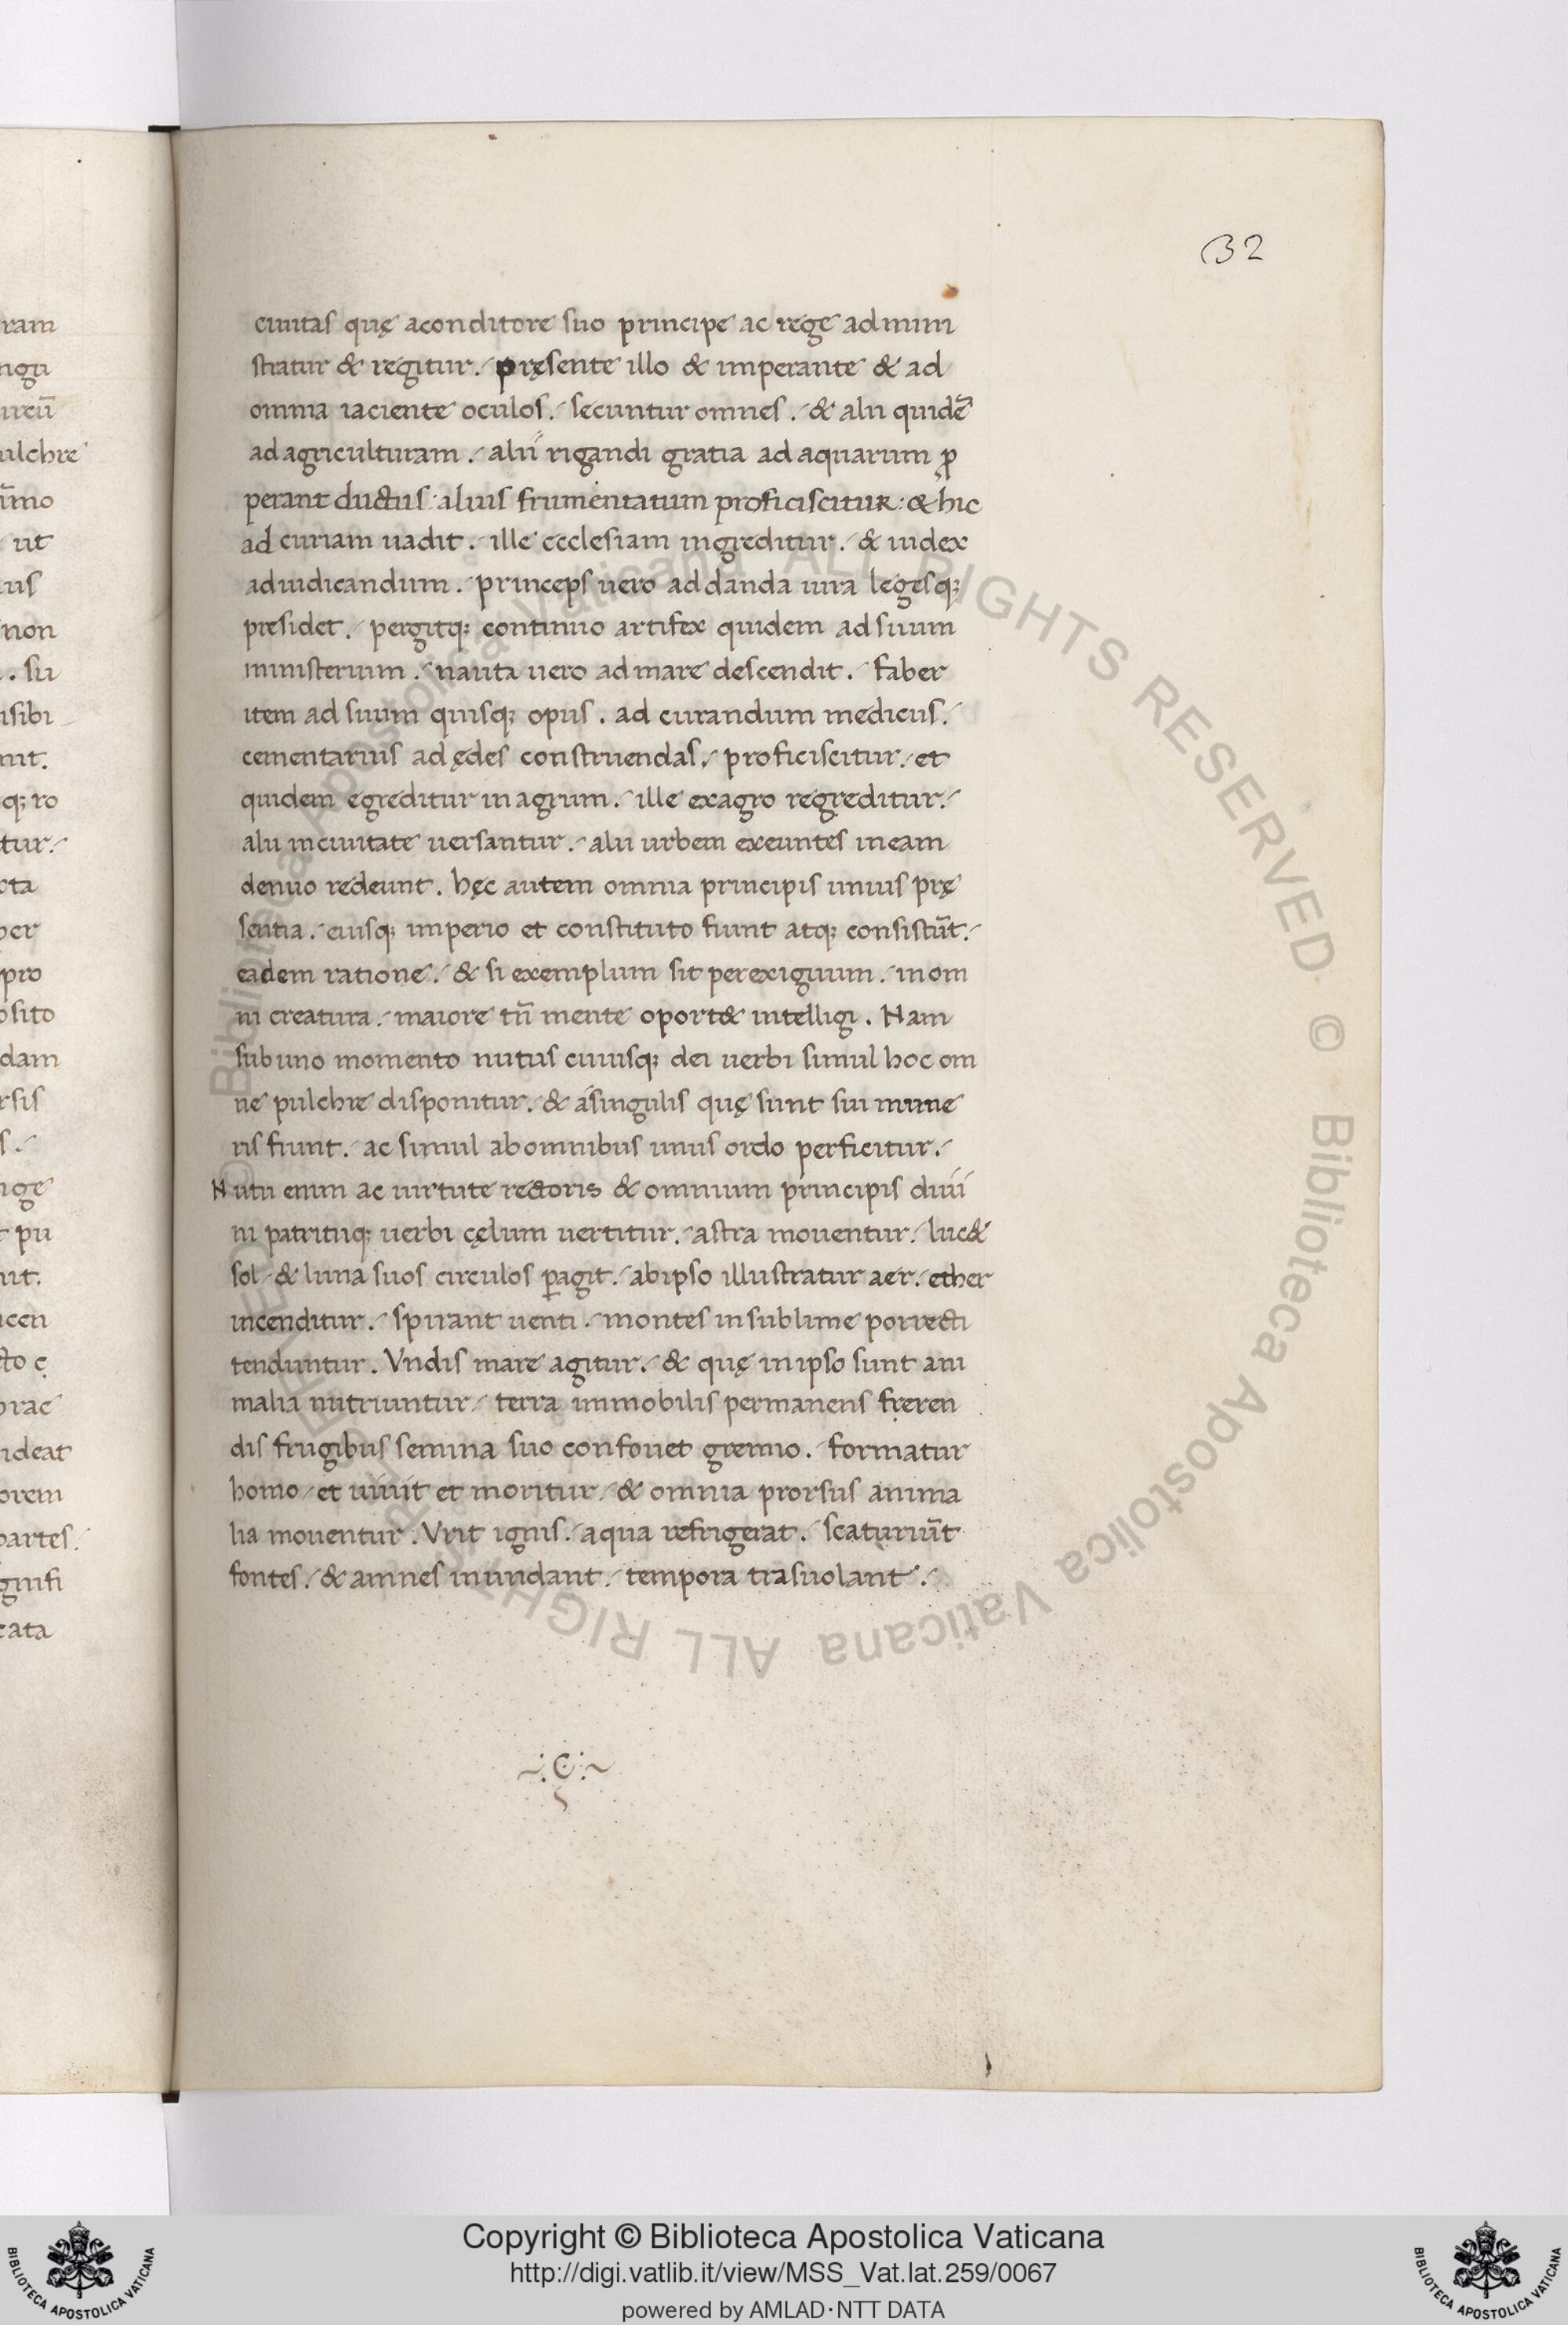 32
ciuitas quę aconditore suo principe ac rege admini
stratur & regitur. pręsente illo & imperante & ad
omnia iaciente oculos. secuntur omnes. & alii quidē
ad agriculturam. alii rigandi gratia ad aquarum ꝓ
perant ductus. aluis frumentatum proficiscitur. & hic
ad curiam uadit. ille ecclesiam ingreditur. & iudex
adiudicandum. princeps uero addanda iura legesq;
presidet. pergitq; continuo artifex quidem ad suum
ministerium. nauta uero ad mare descendit. faber
item ad suum quisq; opus. ad curandum medicus.
cementarius ad ędes construendas. proficiscitur. et
quidem egreditur in agrum. ille exagro regreditur.
alii inciuitate uersantur. alii urbem exeuntes ineam
denuo redeunt. hęc autem omnia principis unius prę
sentia. eiusq; imperio et constituto fiunt atq; consistūt.
eadem ratione. & si exemplum sit perexiguum. in om
ni creatura. maiore tn̄ mente oport& intelligi. Nam
sub uno momento nutus cuiusq; dei uerbi simul hoc om
ne pulchre disponitur. & ásingulis quę sunt sui mune
ris fiunt. ac simul abomnibus unus ordo perficitur.
Nutu enim ac uirtute rectoris & omnium principis diui
ni patritiiq; uerbi cęlum uertitur. astra mouentur. luc&
sol & luna suos circulos ꝑagit. abipso illustratur aer. ether
incenditur. spirant uenti. montes insublime porrecti
tenduntur. Vndis mare agitur. & quę inipso sunt ani
malia nutriuntur terra immobilis permanens freren
dis frugibus semina suo confouet gremio. formatur
homo et uiuit et moritur. & omnia prorsus anima
lia mouentur. Vrit ignis. aqua refrigerat. scaturiūt
fontes. & amnes inundant. tempora trasuolant.
© Biblioteca Apostolica Vaticana ALL RIGHTS RESERVED
Copyright © Biblioteca Apostolica Vaticana
http://digi.vatlib.it/view/MSS_Vat.lat.259/0067
powered by AMLAD·NTT DATA
BIBLIOTECA APOSTOLICA VATICANA
BIBLIOTECA APOSTOLICA VATICANA